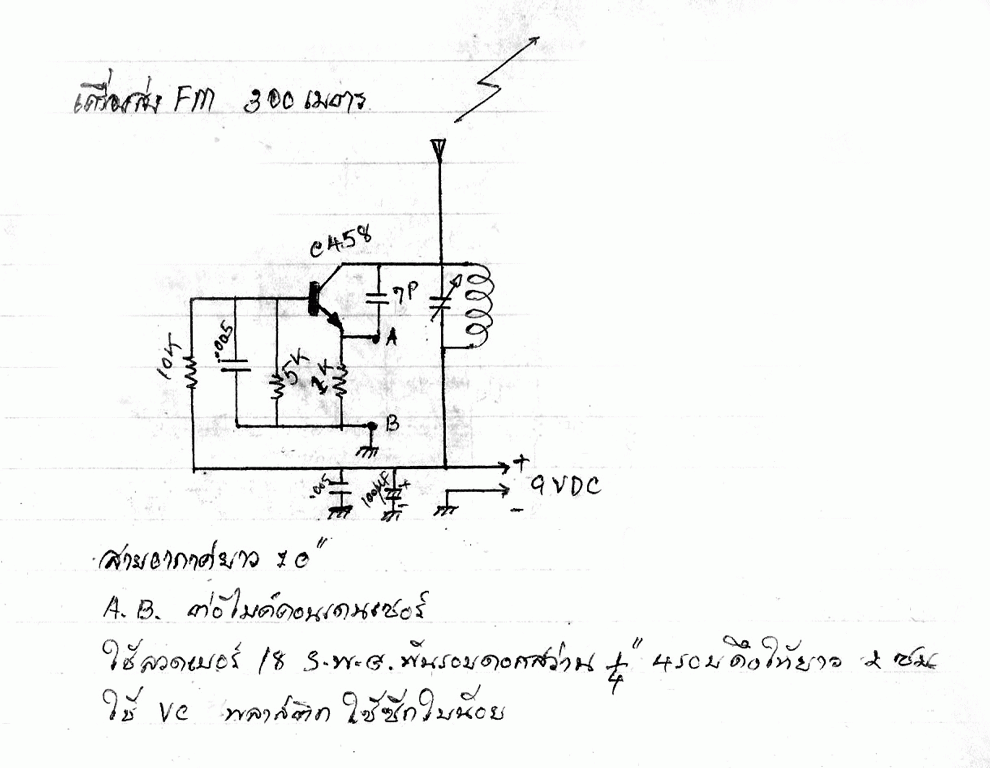 เครื่องส่ง FM 300 เมตร
C458
7P
A
10K
.005
5K
1K
B
.005
100µF
+
-
+
9VDC
-
สายอากาศยาว 10"
A.B. ต่อไมค์คอนเดนเซอร์
ใช้ลวดเบอร์ 18 S.W.G. พันรอบดอกสว่าน 1/4" 4 รอบดึงให้ยาว 2 ซม
ใช้ VC พลาสติก ใช้ซีกใบน้อย